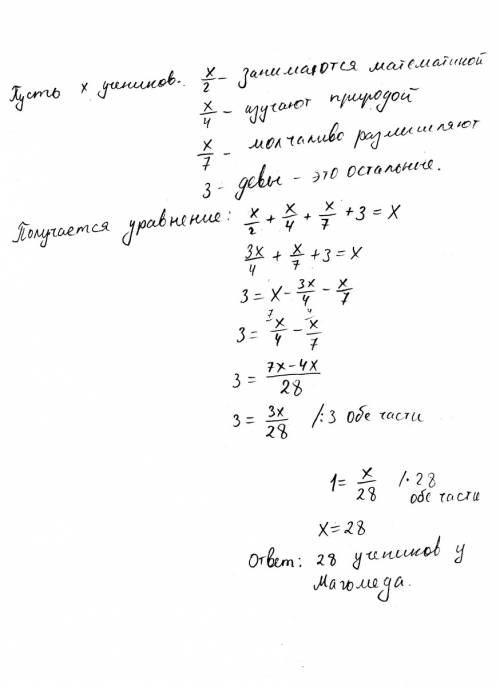 Пусть x учеников. x/2 - занимаются математикой
x/4 - изучают природой
x/7 - молчаливо размышляют
3 - девы - это остальные.
Получается уравнение: x/2 + x/4 + x/7 + 3 = x
3x/4 + x/7 + 3 = x
3 = x - 3x/4 - x/7
3 = ⁷x/4 - ⁴x/7
3 = (7x - 4x)/28
3 = 3x/28 /:3 обе части
1 = x/28 /·28
обе части
x = 28
Ответ: 28 учеников у
Магомеда.